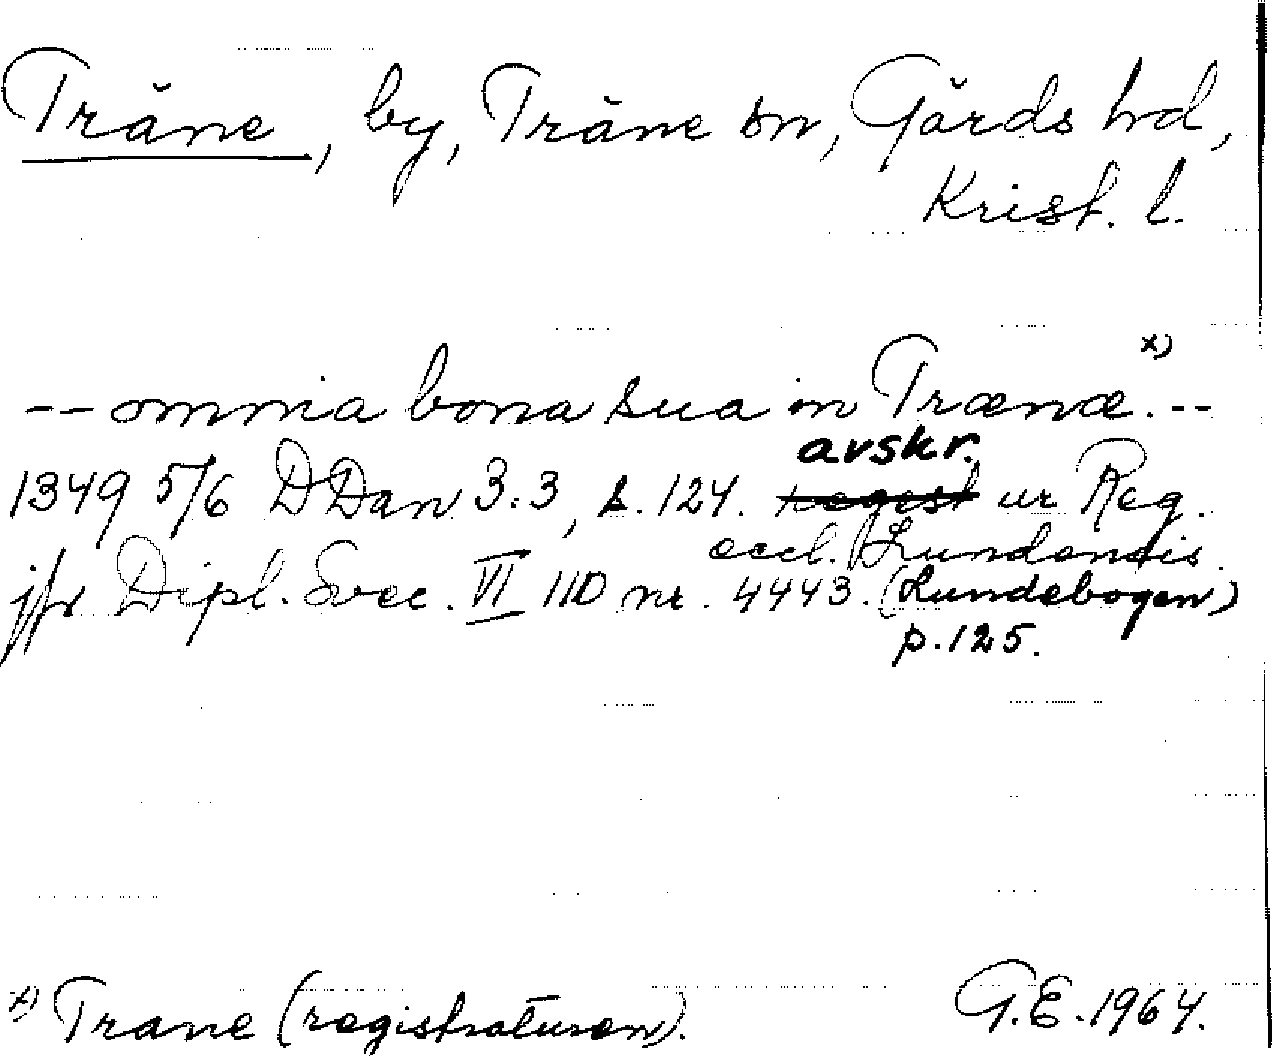 Träne, by, Träne sn, Gärds hd,
Krist. l.
-- omnia bona sua in Trænæ. x) --
avskr.
1349 5/6 DDan 3:3, s. 124. regest ur Reg.
eccl. Lundensis.
jfr Dipl. Svec. VI 110 nr. 4443. (Lundebogen)
p. 125.
x) Trane (registraturen).
G.E. 1964.